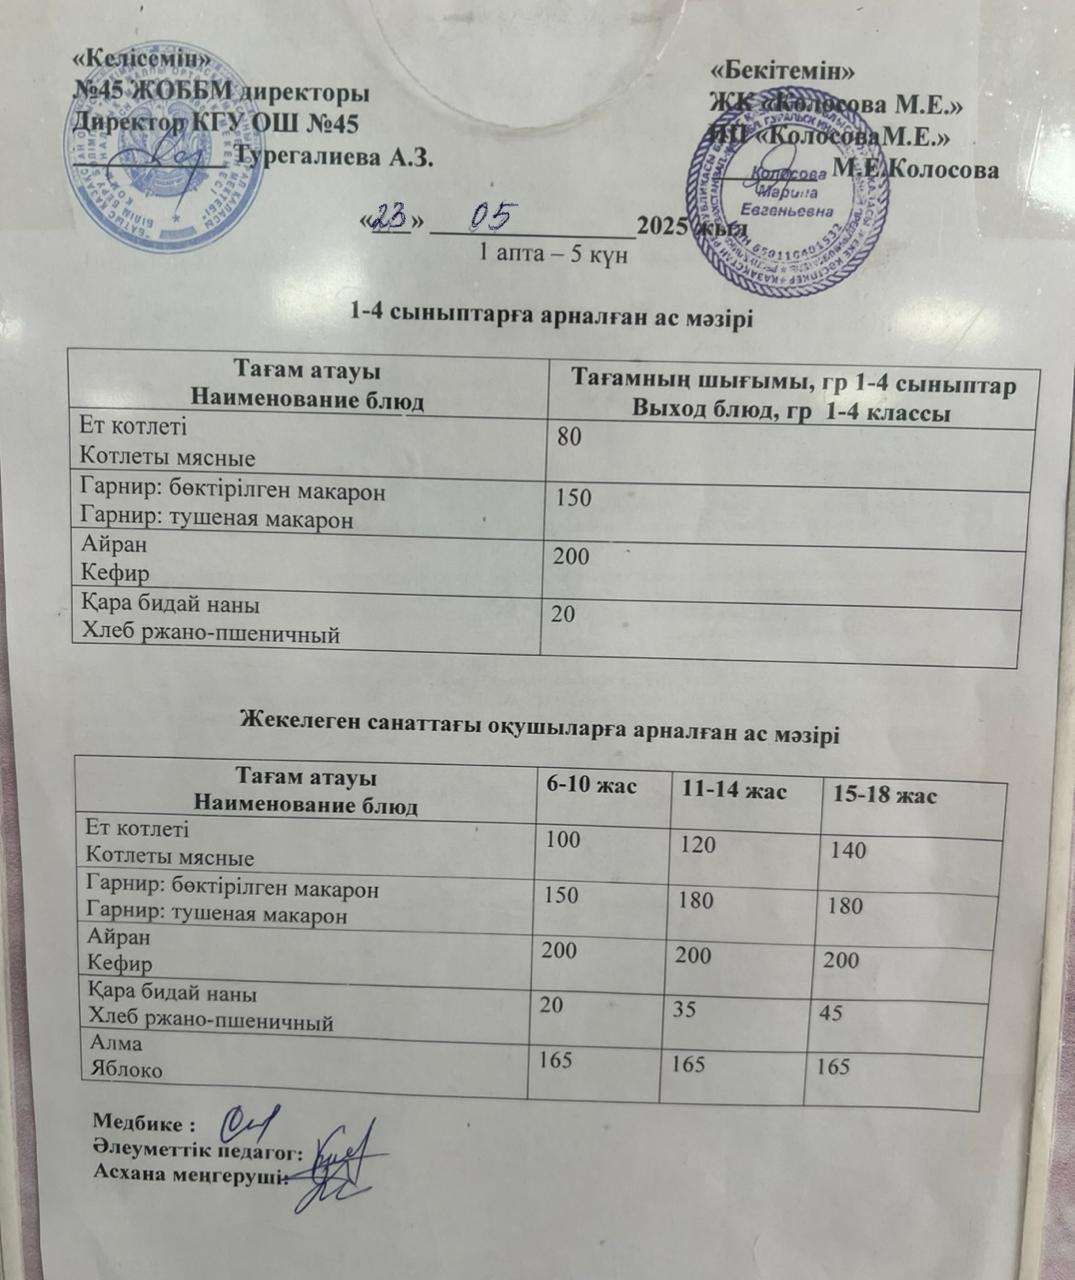 «Келісемін»
№45 ЖОББМ директоры
Директор КГУ ОШ №45
Турегалиева А.З.
«Бекітемін»
ЖК «Колосова М.Е.»
ИП «КолосоваМ.Е.»
М.Е.Колосова
Колосова
Марина
Евгеньевна
«23» 05 2025 жыл
1 апта – 5 күн
1-4 сыныптарға арналған ас мәзірі
Тағам атауы
Наименование блюд
Тағамның шығымы, гр 1-4 сыныптар
Выход блюд, гр 1-4 классы
Ет котлеті
Котлеты мясные
80
Гарнир: бөктірілген макарон
Гарнир: тушеная макарон
150
Айран
Кефир
200
Қара бидай наны
Хлеб ржано-пшеничный
20
Жекелеген санаттағы оқушыларға арналған ас мәзірі
Тағам атауы
Наименование блюд
6-10 жас
11-14 жас
15-18 жас
Ет котлеті
Котлеты мясные
100
120
140
Гарнир: бөктірілген макарон
Гарнир: тушеная макарон
150
180
180
Айран
Кефир
200
200
200
Қара бидай наны
Хлеб ржано-пшеничный
20
35
45
Алма
Яблоко
165
165
165
Медбике :
Әлеуметтік педагог:
Асхана меңгеруші: